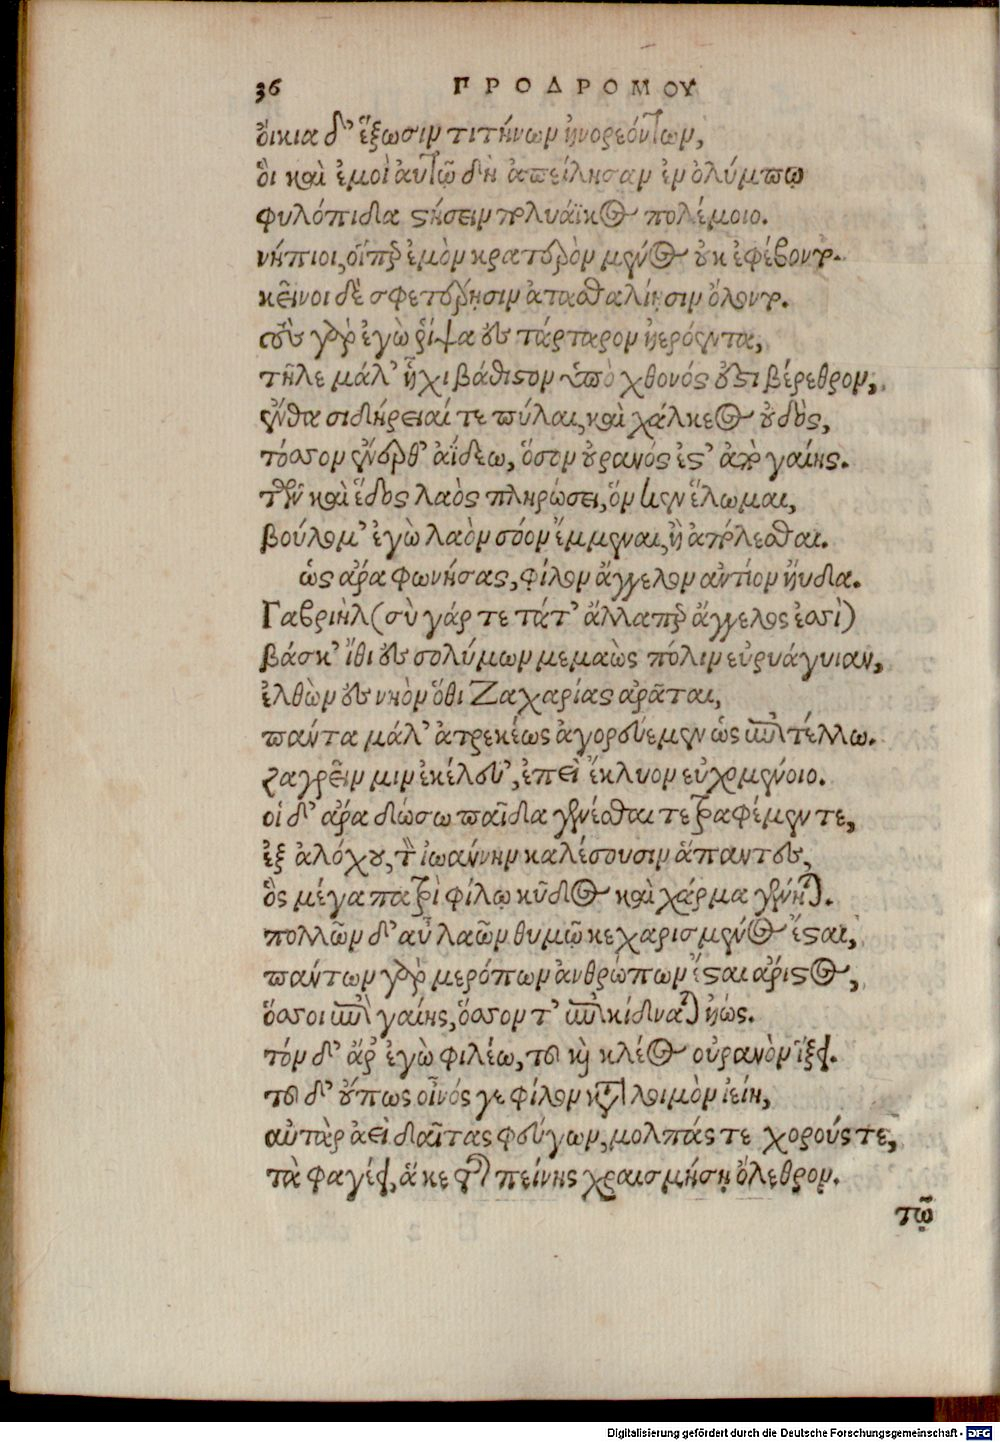 36 ΠΡΟΔΡΟΜΟΥ
οἴκια δ' ἕξωσιν τιτήνων ἠνορεόντων,
οἳ καὶ ἐμοὶ αὐτῷ δὴ ἀπείλησαν ἐν ὀλύμπῳ
φυλόπιδα στήσειν πολυάϊκος πολέμοιο.
νήπιοι, οἵπερ ἐμὸν κρατερὸν μένος οὐκ ἐφέβοντο.
κεῖνοι δὲ σφετέρῃσιν ἀτασθαλίῃσιν ὄλοντο.
τοὺς γὰρ ἐγὼ ῥίψα ἐς τάρταρον ἠερόεντα,
τῆλε μάλ' ἧχι βάθιστον ὑπὸ χθονός ἐστι βέρεθρον,
ἔνθα σιδήρειαί τε πύλαι, καὶ χάλκεος οὐδὸς,
τόσσον ἔνερθ' ἀΐδεω, ὅσον οὐρανός ἐστ' ἀπὸ γαίης.
τῶν καὶ ἕδος λαὸς πληρώσει, ὃν μὲν ἕλωμαι,
βούλομ' ἐγὼ λαὸν σόον ἔμμεναι, ἢ ἀπολέσθαι.
ὡς ἄρα φωνήσας, φίλον ἄγγελον ἀντίον ηὔδα.
Γαβριὴλ (σὺ γάρ τε τάτ' ἄλλαπερ ἄγγελος ἐσσὶ)
βάσκ' ἴθι ἐς σολύμων μεμαὼς πόλιν εὐρυάγυιαν,
ἐλθὼν ἐς νηὸν ὅθι Ζαχαρίας ἀρᾶται,
πάντα μάλ' ἀτρεκέως ἀγορευέμεν ὡς ἐπιτέλλω.
ζαγρεῖν μιν ἐκέλευ', ἐπεὶ ἔκλυον εὐχομένοιο.
οἱ δ' ἄρα δώσω παῖδα γενέσθαι τε τραφέμεν τε,
ἐξ ἀλόχου, τὸν ἰωάννην καλέσουσιν ἅπαντες,
ὃς μέγα πατρὶ φίλῳ κῦδος καὶ χάρμα γένηται.
πολλῶν δ' αὖ λαῶν θυμῷ κεχαρισμένος ἔσται,
πάντων γὰρ μερόπων ἀνθρώπων ἔσται ἄριστος,
ὅσσοι ἐπὶ γαίης, ὅσσον τ' ἐπικίδναται ἠώς.
τόν δ' ἄρ' ἐγὼ φιλέω, τοῦ καὶ κλέος οὐρανὸν ἵξει.
τοῦ δ' οὔπως οἶνός γε φίλον κατὰ λοιμὸν ἰείη,
αὐτὰρ ἀεὶ δαῖτας φεύγων, μολπάς τε χορούς τε,
τὰ φαγέει, ἅ κε πείνης χραισμήσῃ ὄλεθρον.
τῷ
Digitalisierung gefördert durch die Deutsche Forschungsgemeinschaft - DFG